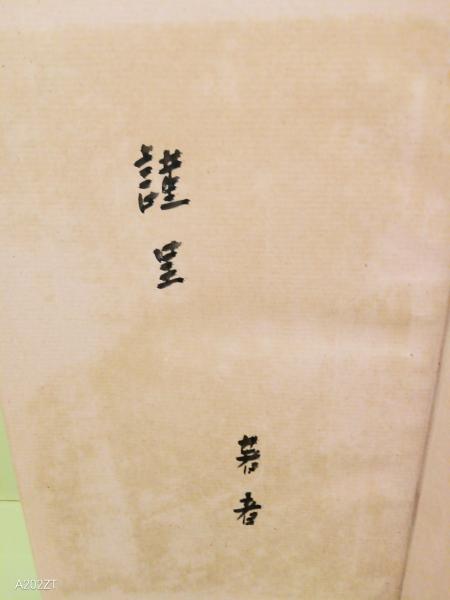 謹呈
著者
A202ZT